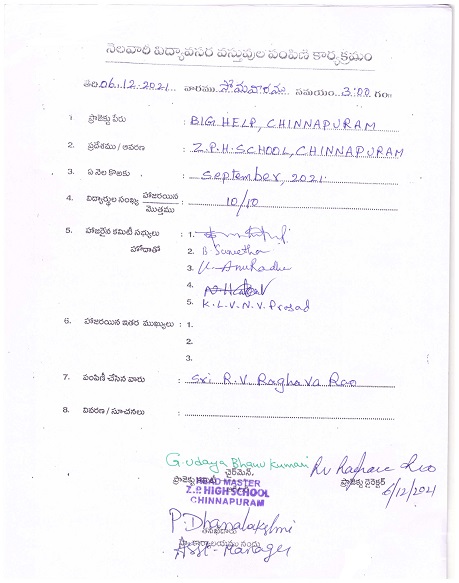 నెలవారి విద్యావసర వస్తువుల పంపిణి కార్యక్రమం
తేది 06.12.2021. వారము సోమవారము సమయం 3:00 గం॥
1 ప్రాజెక్టు పేరు : BIG HELP, CHINNAPURAM
2. ప్రదేశము / ఆవరణ : Z.P.H.SCHOOL, CHINNAPURAM
3. ఏ నెల కొఱకు : September, 2021.
4. విద్యార్థుల సంఖ్య హాజరయిన / మొత్తము : 10/10
5. హాజరైన కమిటీ సభ్యులు : 1.
హోదాతో 2. B Sunetha
3. K. Anuradha
4.
5. K.L.V.N.V. Prasad
6. హాజరయిన ఇతర ముఖ్యులు : 1.
2.
3.
7. పంపిణీ చేసిన వారు : Sri R.V. Raghava Rao
8. వివరణ / సూచనలు :
G. Udaya Bhanu Kumari RV Raghava Rao
ఛైర్మెన్,
ప్రాజెక్టు డైరెక్టర్
6/12/2021
HEAD MASTER
Z.P HIGH SCHOOL
CHINNAPURAM
P. Dhanalakshmi
Asst. Manager